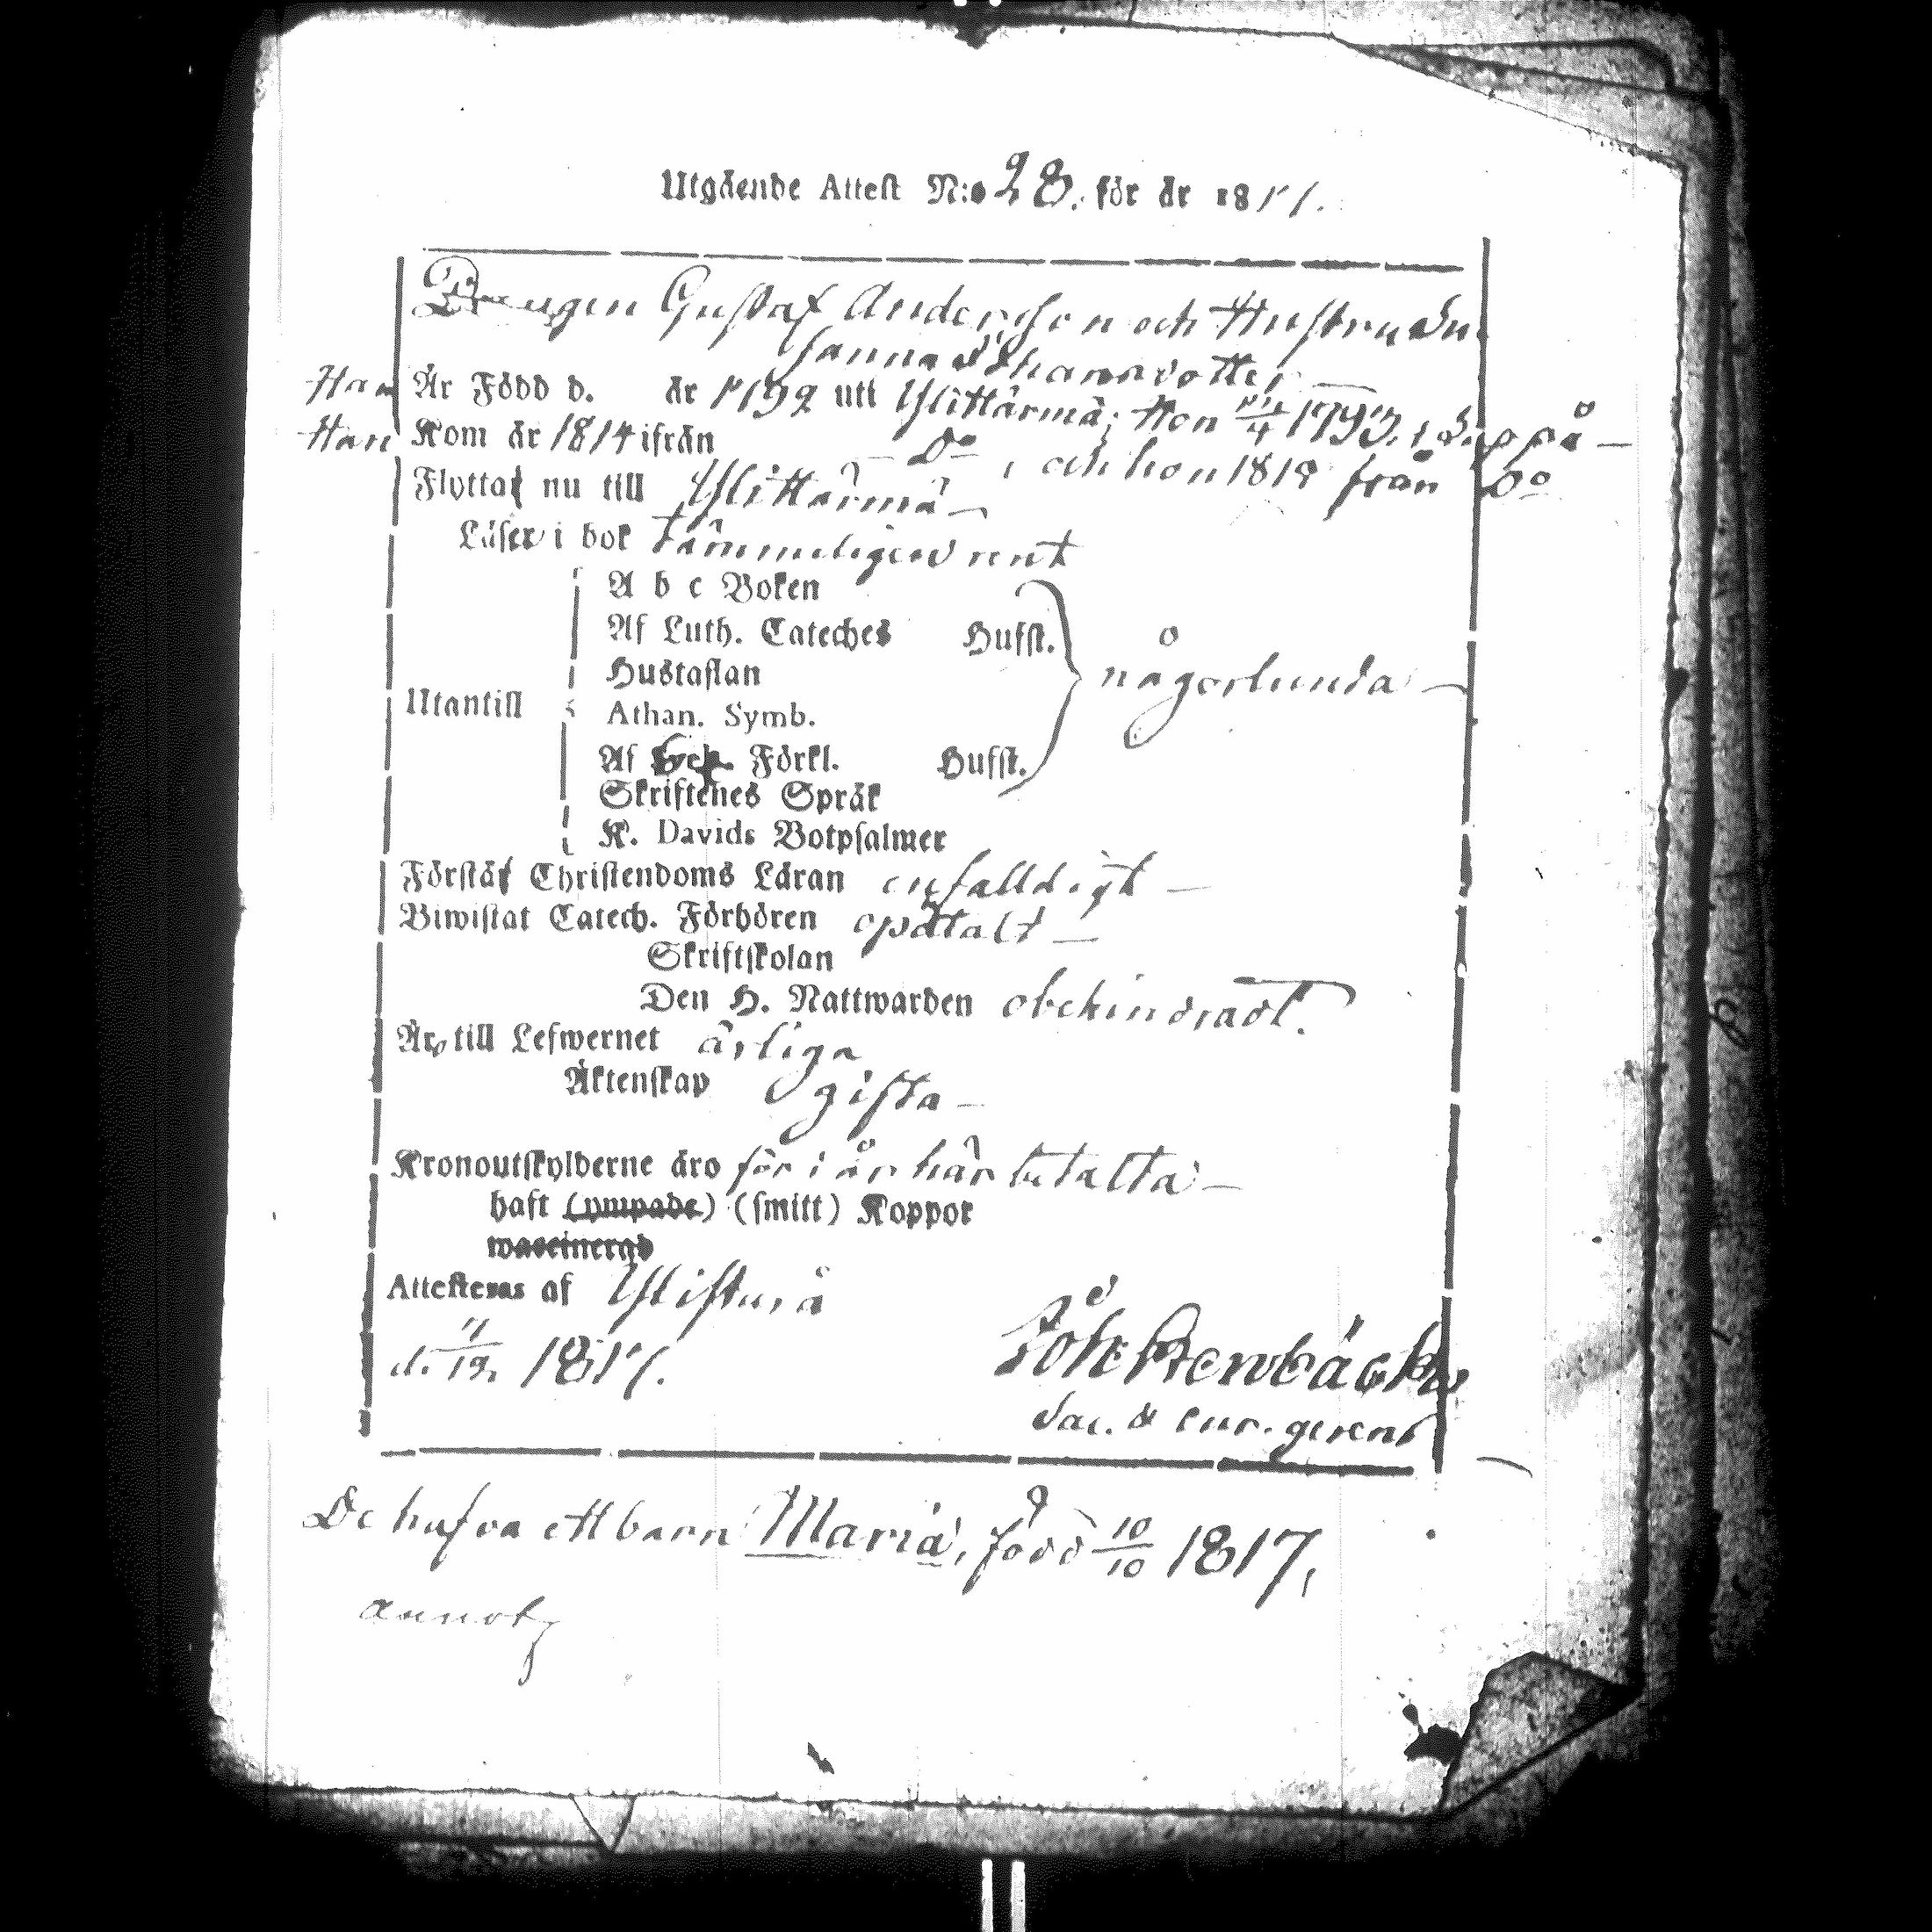 Utgående Attest N:o 28. för år 1817.
Drengen Gustaf Andersson och Hustru Su-
sanna Johannsdotter
Han Är Född d. år 1792 uti Ylistarmå; Hon 1793. i Lappå —
Han Kom år 1814 ifrån — Do , och hon 1818 från Do
Flytta nu till Ylistarmå —
Läser i bok tämmeligen rent
A b c Boken
Af Luth. Cateches Hufst.
Hustaflan
Utantill någorlunda —
Athan. Symb.
Af Förkl. Hufst.
Skriftenes Språk
K. Davids Botpsalmer
Förstå Christendoms Läran enfalldigt —
Biwistat Catech. Förhören opåtalt —
Skriftskolan
Den H. Nattwarden obehindradt.
Äro till Lefwernet ärliga
Äktenskap gifta —
Kronoutskylderne äro för i år här betalta —
haft (ympade) (smitt) Koppor
Attesteras af Ylistarå
d. 11/12 1817.
Joh. Stenbäck
Sac. & cur. gerens
De hafva ett barn Maria, född 10/10 1817,
annot